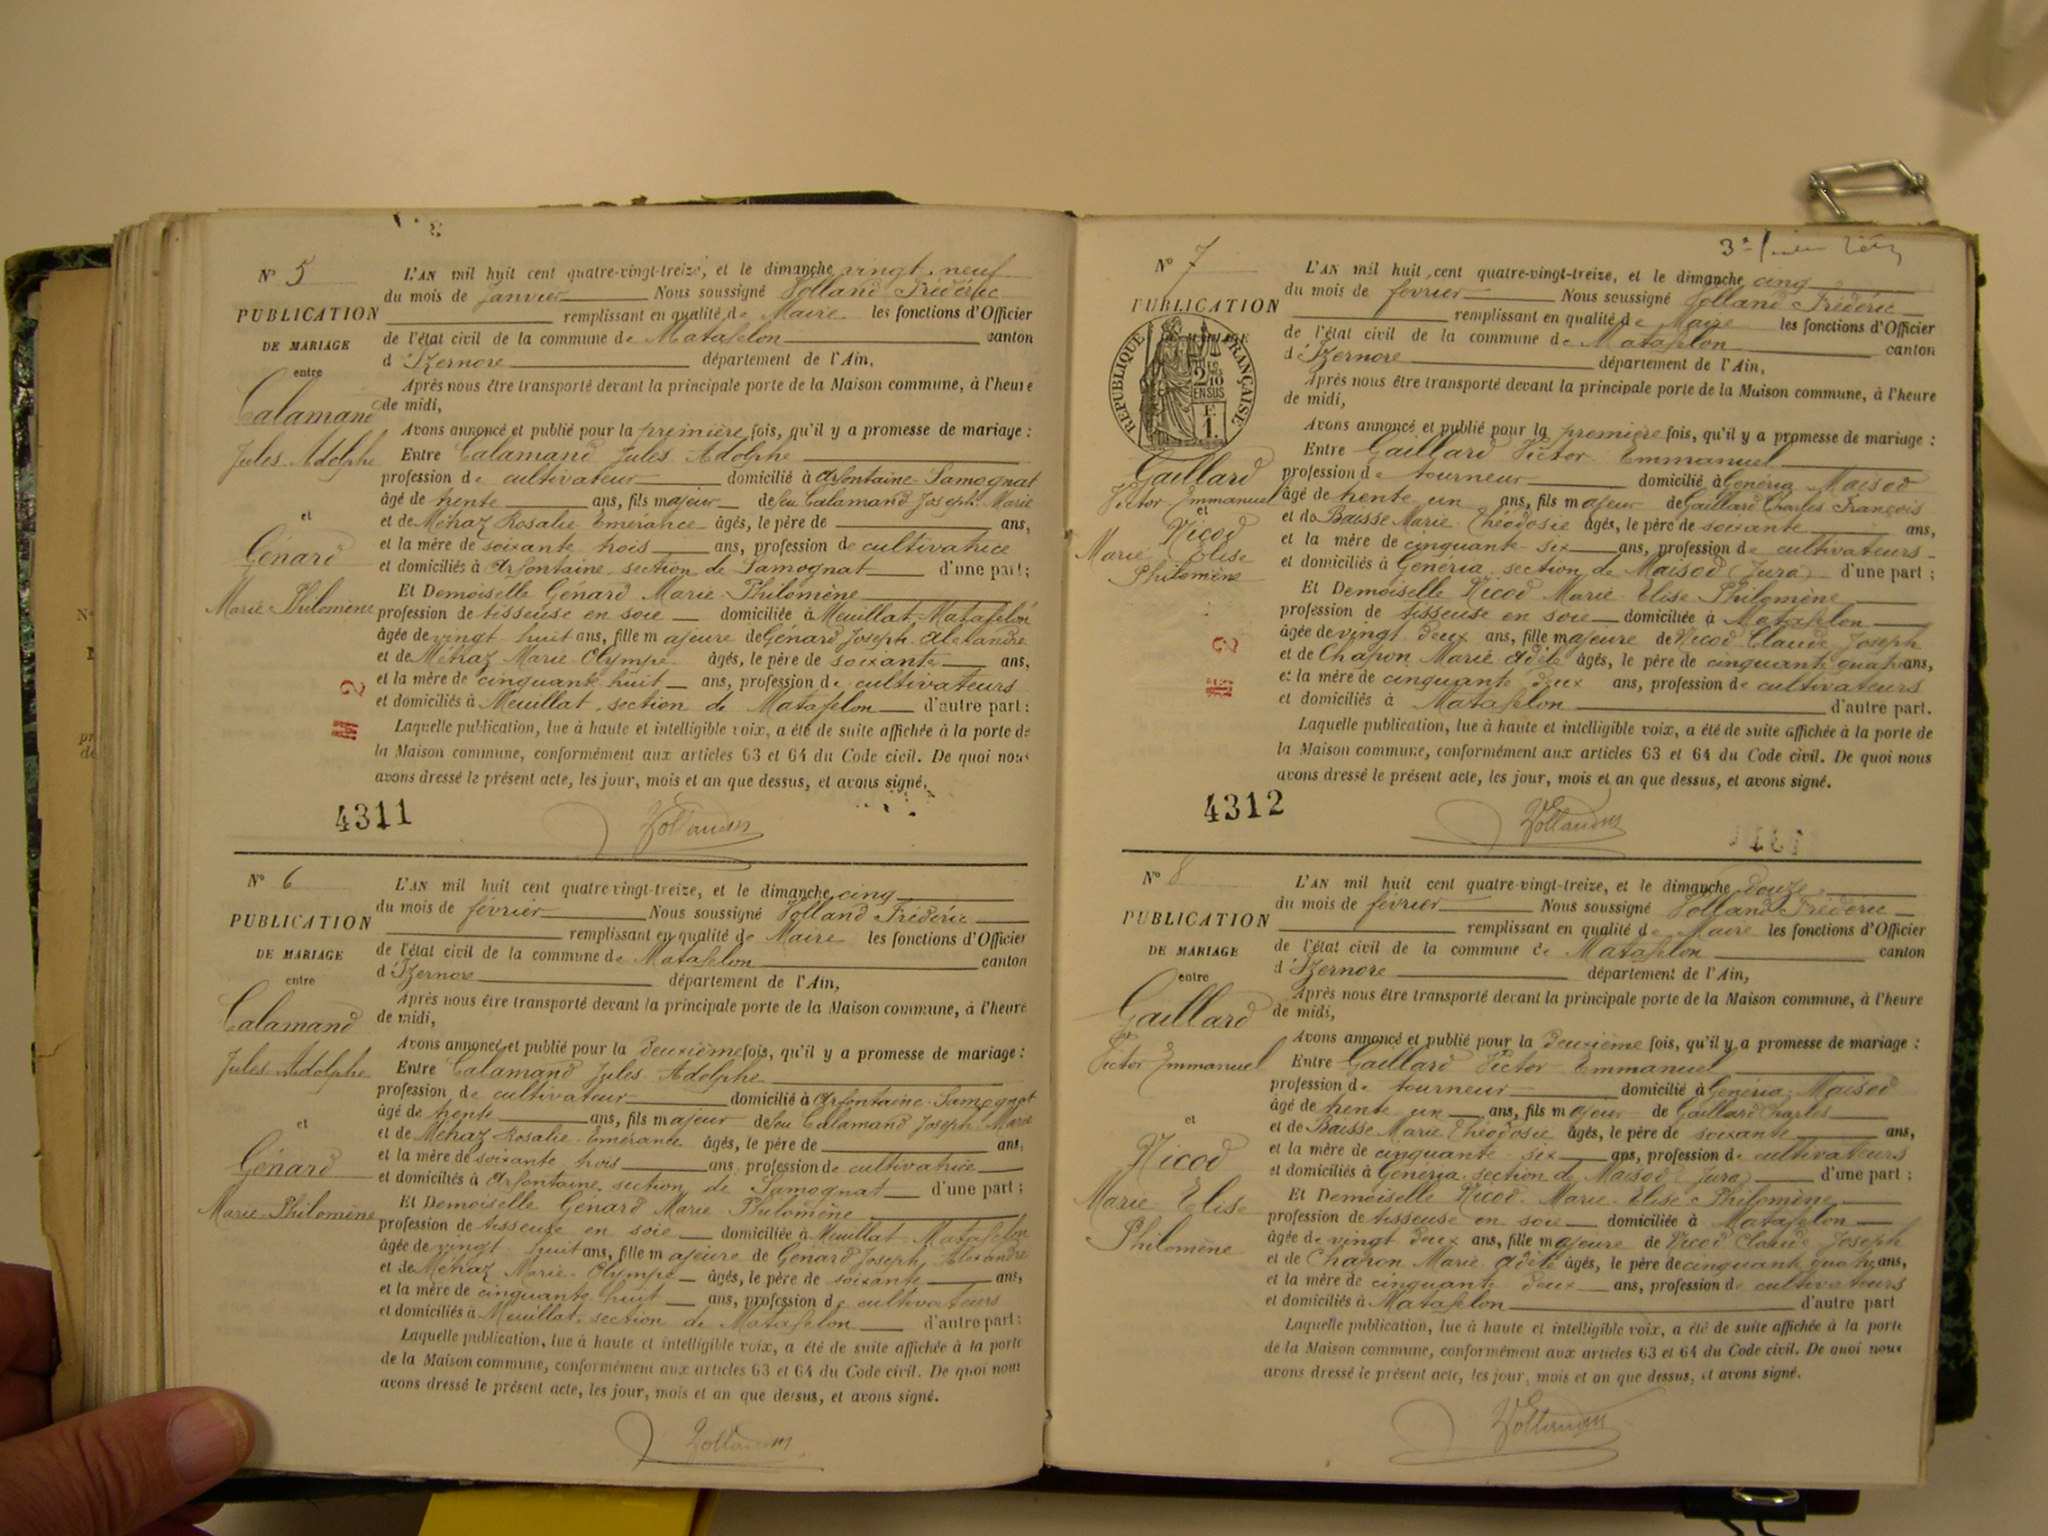 N° 5
PUBLICATION
DE MARIAGE
entre
Calamand
Jules Adolphe
et
Génard
Marie Philomène
L'AN mil huit cent quatre-vingt-treize, et le dimanche vingt neuf
du mois de Janvier Nous soussigné Volland Frédéric
remplissant en qualité de Maire les fonctions d'Officier
de l'état civil de la commune de Matafelon canton
d'Izernore département de l'Ain,
Après nous être transporté devant la principale porte de la Maison commune, à l'heure
de midi,
Avons annoncé et publié pour la première fois, qu'il y a promesse de mariage :
Entre Calamand Jules Adolphe
profession de cultivateur domicilié à Arfontaine-Samognat
âgé de trente ans, fils majeur de feu Calamand Joseph Marie
et de Métraz Rosalie Emérance âgés, le père de ans,
et la mère de soixante trois ans, profession de cultivatrice
et domiciliés à Arfontaine section de Samognat d'une part;
Et Demoiselle Génard Marie Philomène
profession de tisseuse en soie domiciliée à Meuillat-Matafelon
âgée de vingt huit ans, fille majeure de Génard Joseph Alexandre
et de Métraz Marie Olympe âgés, le père de soixante ans,
et la mère de cinquante huit ans, profession de cultivateurs
et domiciliés à Meuillat, section de Matafelon d'autre part:
Laquelle publication, lue à haute et intelligible voix, a été de suite affichée à la porte de
la Maison commune, conformément aux articles 63 et 64 du Code civil. De quoi nous
avons dressé le présent acte, les jour, mois et an que dessus, et avons signé.
4311
Volland
N° 6
PUBLICATION
DE MARIAGE
entre
Calamand
Jules Adolphe
et
Génard
Marie Philomène
L'AN mil huit cent quatre-vingt-treize, et le dimanche cinq
du mois de février Nous soussigné Volland Frédéric
remplissant en qualité de Maire les fonctions d'Officier
de l'état civil de la commune de Matafelon canton
d'Izernore département de l'Ain,
Après nous être transporté devant la principale porte de la Maison commune, à l'heure
de midi,
Avons annoncé et publié pour la deuxième fois, qu'il y a promesse de mariage :
Entre Calamand Jules Adolphe
profession de cultivateur domicilié à Arfontaine-Samognat
âgé de trente ans, fils majeur de feu Calamand Joseph Marie
et de Métraz Rosalie Emérance âgés, le père de ans,
et la mère de soixante trois ans, profession de cultivatrice
et domiciliés à Arfontaine, section de Samognat d'une part ;
Et Demoiselle Génard Marie Philomène
profession de tisseuse en soie domiciliée à Meuillat-Matafelon
âgée de vingt huit ans, fille majeure de Génard Joseph Alexandre
et de Métraz Marie Olympe âgés, le père de soixante ans,
et la mère de cinquante huit ans, profession de cultivateurs
et domiciliés à Meuillat, section de Matafelon d'autre part:
Laquelle publication, lue à haute et intelligible voix, a été de suite affichée à la porte
de la Maison commune, conformément aux articles 63 et 64 du Code civil. De quoi nous
avons dressé le présent acte, les jour, mois et an que dessus, et avons signé.
Volland
N° 7
PUBLICATION
RÉPUBLIQUE FRANÇAISE
2/10
EN SUS
1 F.
Gaillard
Victor Emmanuel
et
Nicod
Marie Elise
Philomène
L'AN mil huit cent quatre-vingt-treize, et le dimanche cinq
du mois de février Nous soussigné Volland Frédéric
remplissant en qualité de Maire les fonctions d'Officier
de l'état civil de la commune de Matafelon canton
d'Izernore département de l'Ain,
Après nous être transporté devant la principale porte de la Maison commune, à l'heure
de midi,
Avons annoncé et publié pour la première fois, qu'il y a promesse de mariage :
Entre Gaillard Victor Emmanuel
profession de tourneur domicilié à Genéria Maisod
âgé de trente un ans, fils majeur de Gaillard Charles François
et de Baisse Marie Théodosie âgés, le père de soixante ans,
et la mère de cinquante-six ans, profession de cultivateurs
et domiciliés à Genéria section de Maisod (Jura) d'une part ;
Et Demoiselle Nicod Marie Elise Philomène
profession de tisseuse en soie domiciliée à Matafelon
âgée de vingt deux ans, fille majeure de Nicod Claude Joseph
et de Chapon Marie Adèle âgés, le père de cinquante quatre ans,
et la mère de cinquante deux ans, profession de cultivateurs
et domiciliés à Matafelon d'autre part.
Laquelle publication, lue à haute et intelligible voix, a été de suite affichée à la porte de
la Maison commune, conformément aux articles 63 et 64 du Code civil. De quoi nous
avons dressé le présent acte, les jour, mois et an que dessus, et avons signé.
4312
Volland
N° 8
PUBLICATION
DE MARIAGE
entre
Gaillard
Victor Emmanuel
et
Nicod
Marie Elise
Philomène
L'AN mil huit cent quatre-vingt-treize, et le dimanche douze
du mois de février Nous soussigné Volland Frédéric
remplissant en qualité de Maire les fonctions d'Officier
de l'état civil de la commune de Matafelon canton
d'Izernore département de l'Ain,
Après nous être transporté devant la principale porte de la Maison commune, à l'heure
de midi,
Avons annoncé et publié pour la deuxième fois, qu'il y a promesse de mariage :
Entre Gaillard Victor Emmanuel
profession de tourneur domicilié à Genéria, Maisod
âgé de trente un ans, fils majeur de Gaillard Charles
et de Baisse Marie Théodosie âgés, le père de soixante ans,
et la mère de cinquante six ans, profession de cultivateurs
et domiciliés à Genéria section de Maisod (Jura) d'une part :
Et Demoiselle Nicod Marie Elise Philomène
profession de tisseuse en soie domiciliée à Matafelon
âgée de vingt deux ans, fille majeure de Nicod Claude Joseph
et de Chapon Marie Adèle âgés, le père de cinquante quatre ans,
et la mère de cinquante deux ans, profession de cultivateurs
et domiciliés à Matafelon d'autre part
Laquelle publication, lue à haute et intelligible voix, a été de suite affichée à la porte
de la Maison commune, conformément aux articles 63 et 64 du Code civil. De quoi nous
avons dressé le présent acte, les jour, mois et an que dessus, et avons signé.
Volland